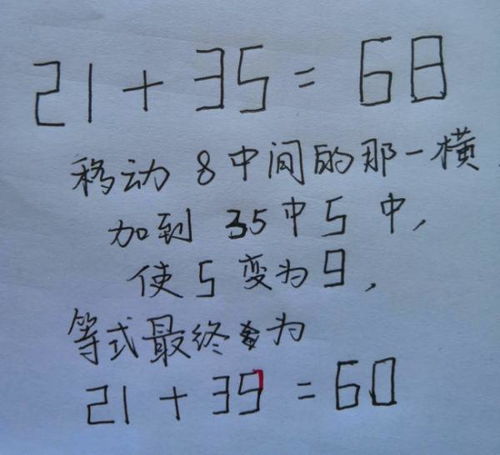 21+35=68
移动8中间的那一横
加到35中5中,
使5变为9,
等式最终为
21+39=60